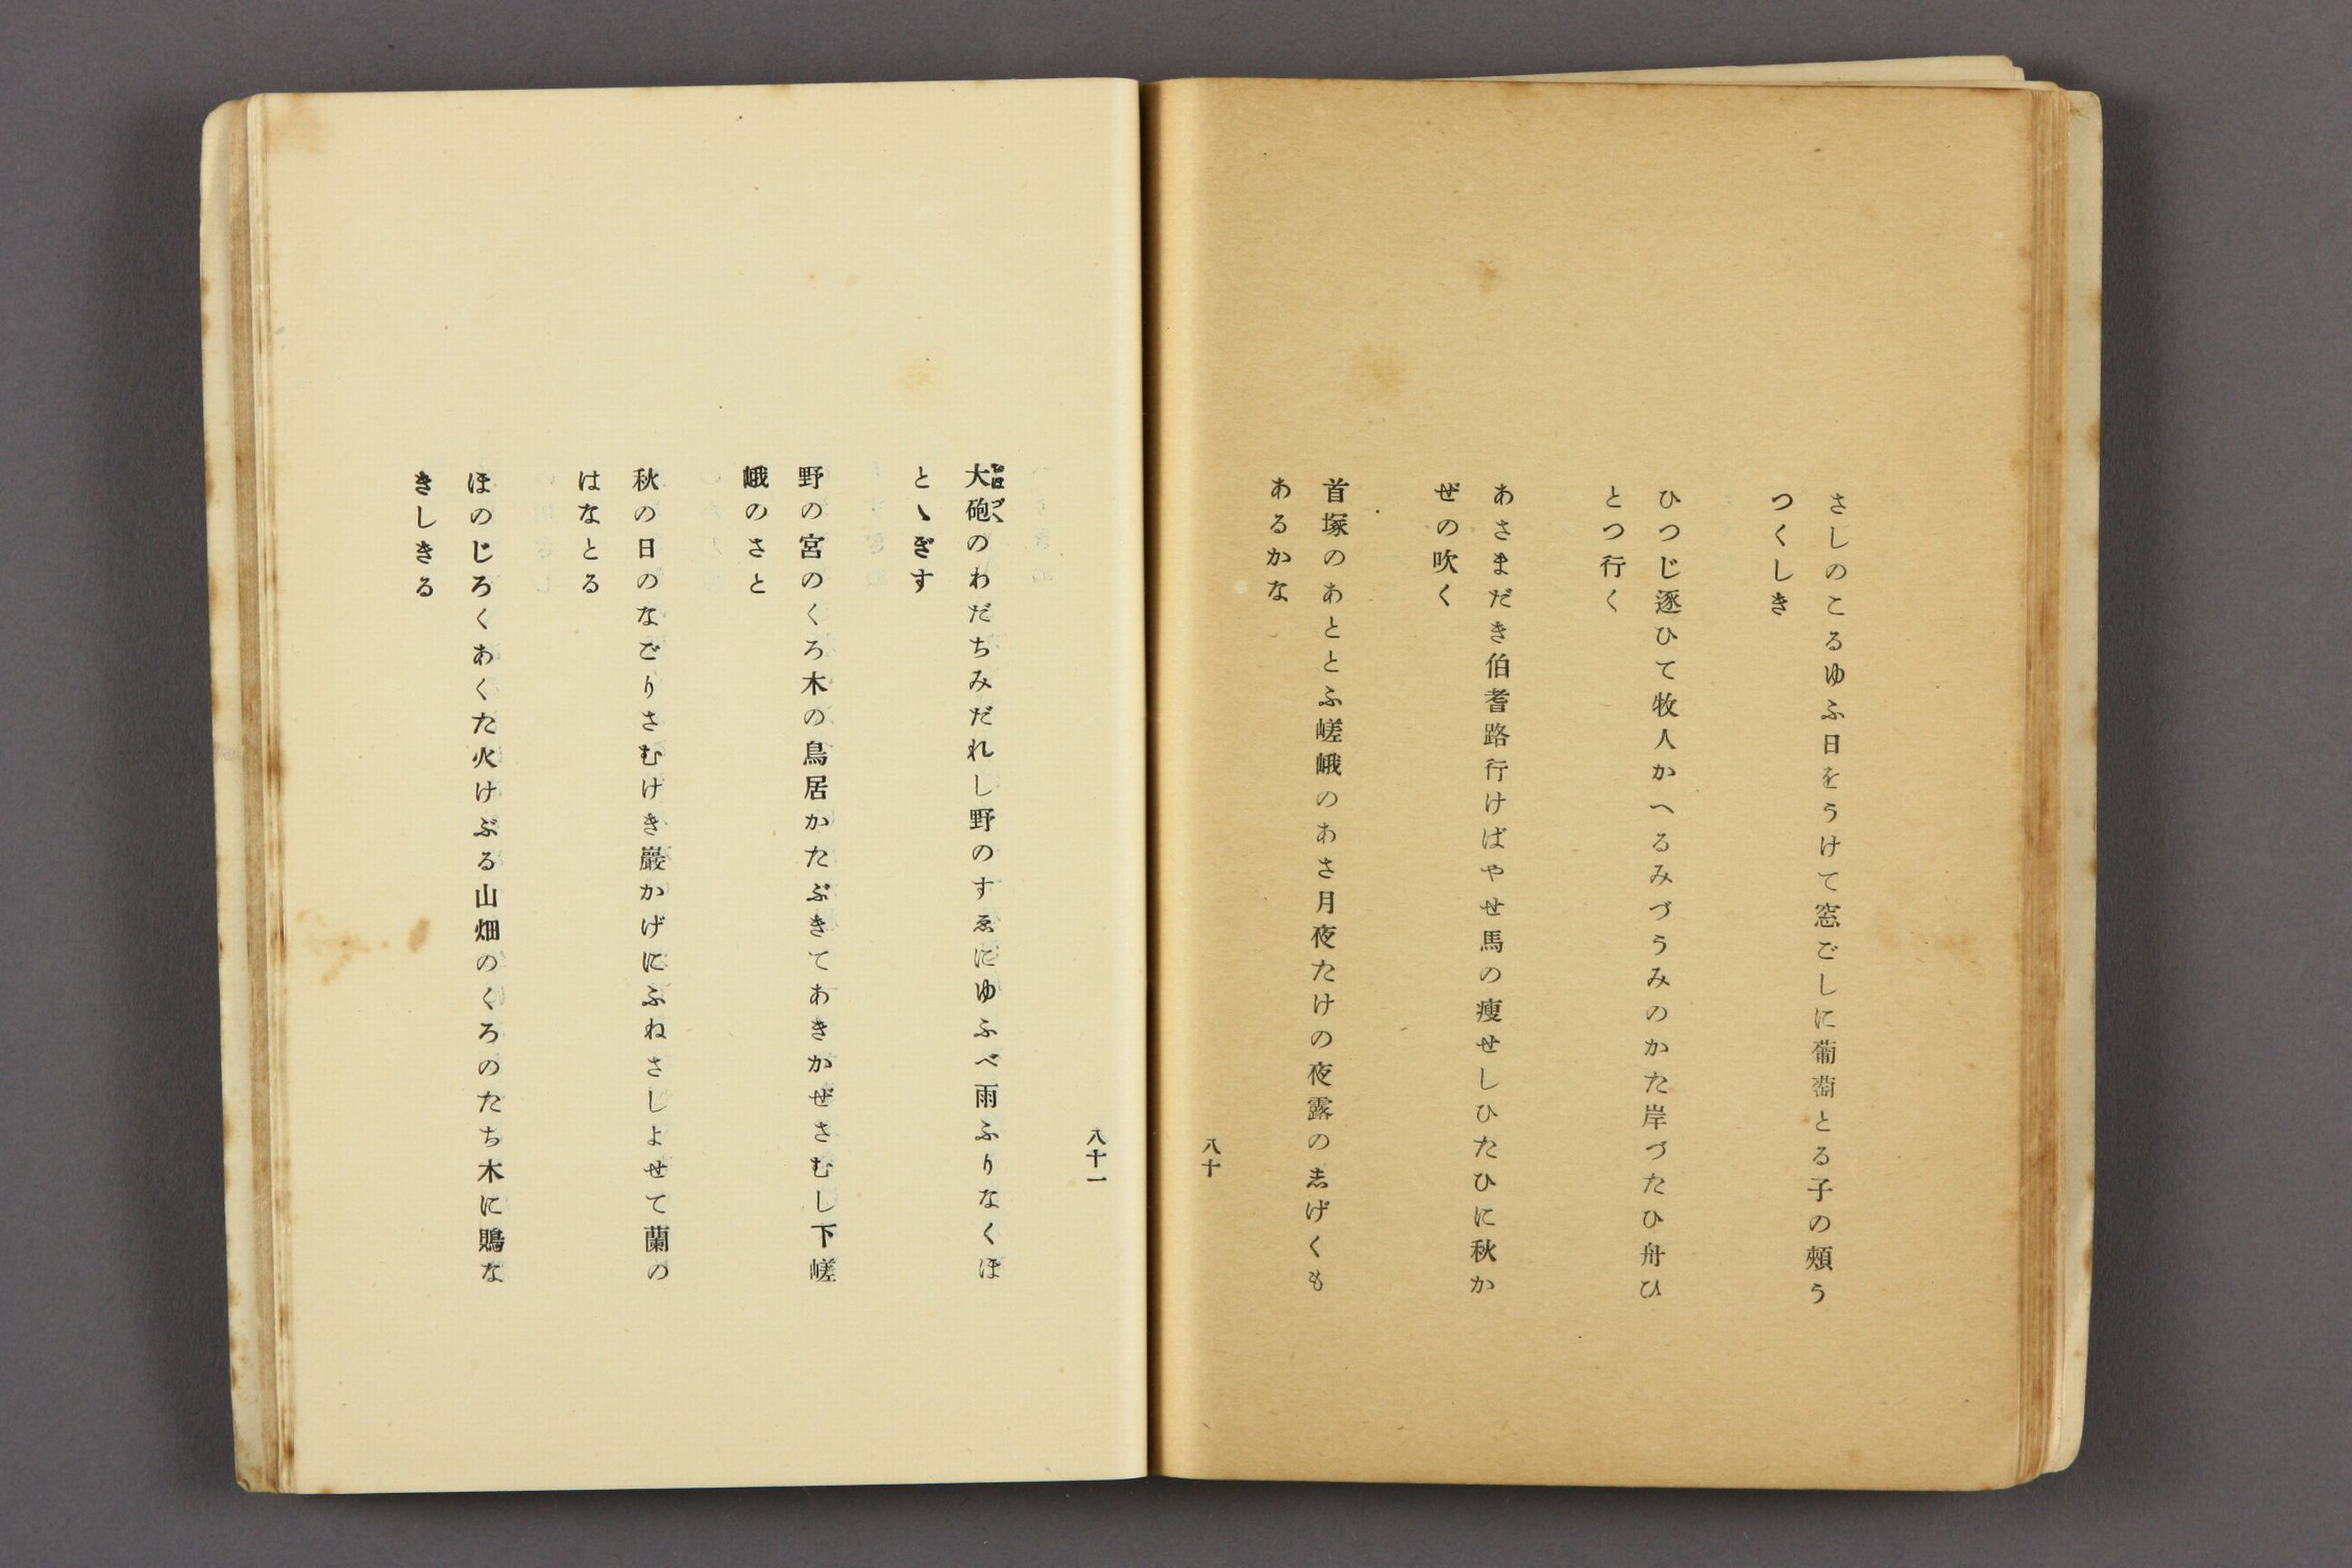 さしのこるゆふ日をうけて窓ごしに葡萄とる子の頰う
つくしき
ひつじ逐ひて牧人かへるみづうみのかた岸づたひ舟ひ
とつ行く
あさまだき伯耆路行けばやせ馬の瘦せしひたひに秋か
ぜの吹く
首塚のあととふ嵯峨のあさ月夜たけの夜露の志げくも
あるかな
八十
八十一
大砲のわだちみだれし野のすゑにゆふべ雨ふりなくほ
おほづつ
とゝぎす
野の宮のくろ木の鳥居かたぶきてあきかぜさむし下嵯
峨のさと
秋の日のなごりさむけき巖かげにふねさしよせて蘭の
はなとる
ほのじろくあくた火けぶる山畑のくろのたち木に鵙な
きしきる